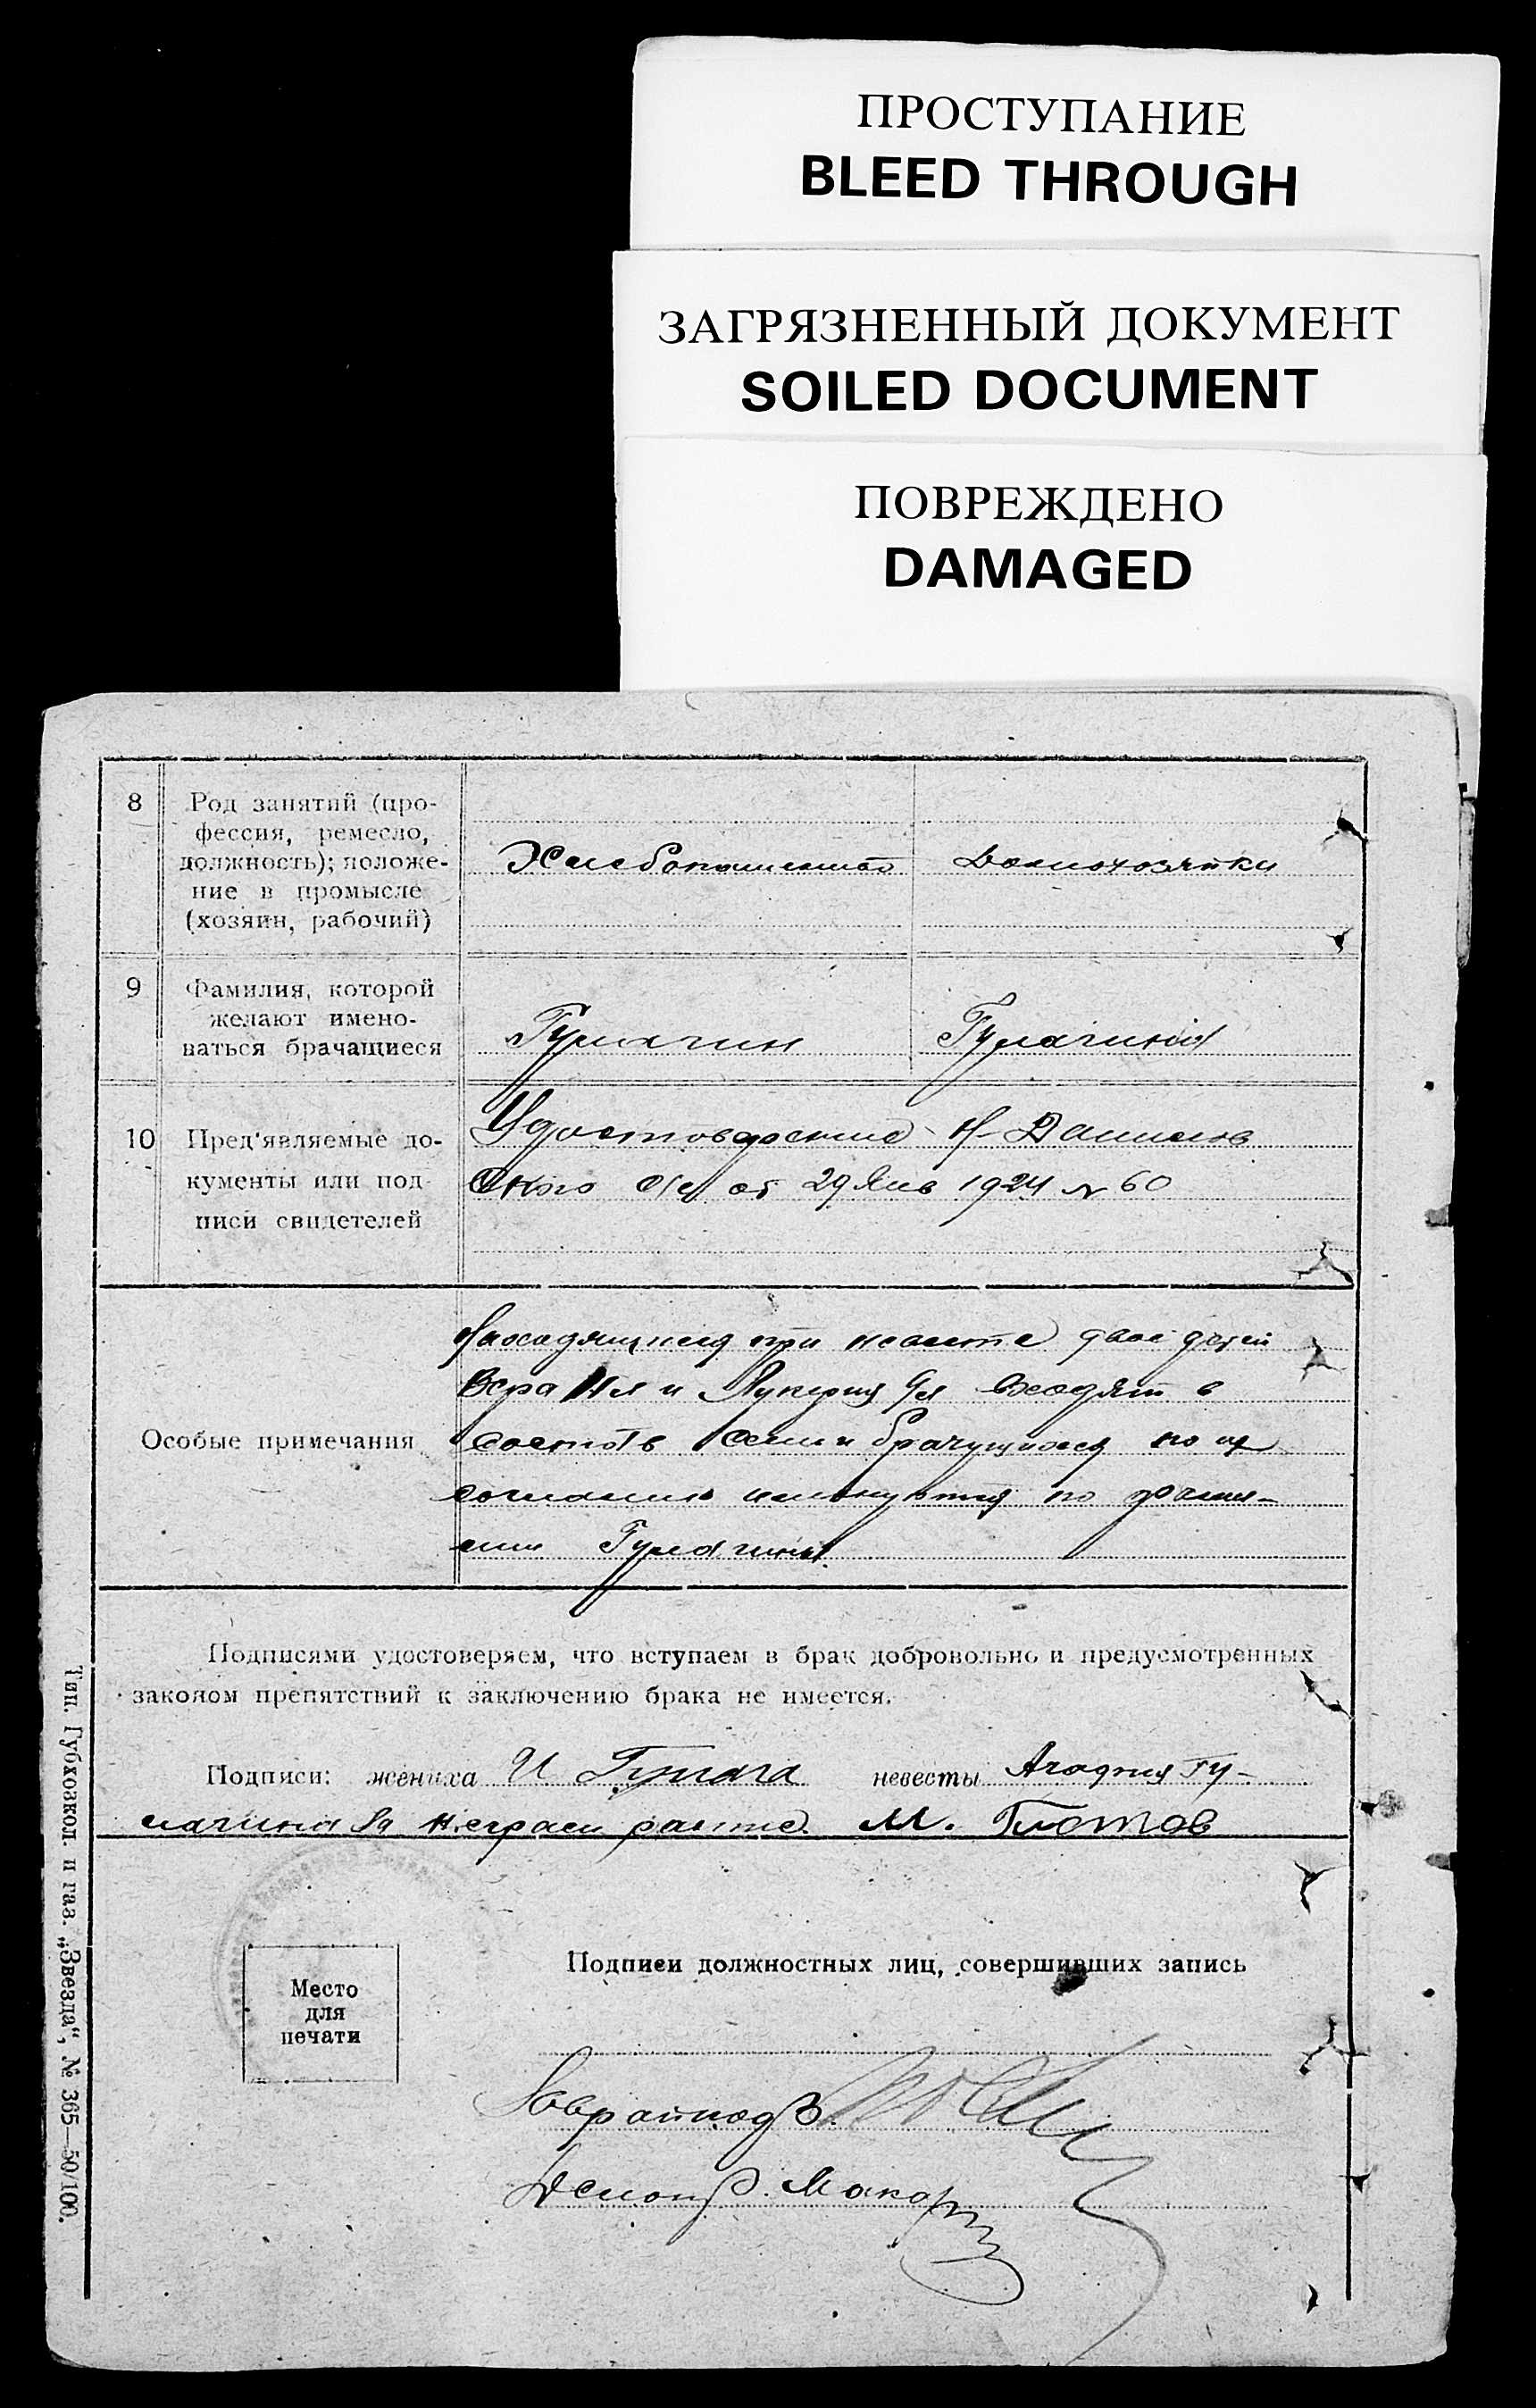 ПРОСТУПАНИЕ
BLEED THROUGH
ЗАГРЯЗНЕННЫЙ ДОКУМЕНТ
SOILED DOCUMENT
ПОВРЕЖДЕНО
DAMAGED
8
Род занятий (про-
фессия, ремесло,
должность); положе-
ние в промысле
(хозяин, рабочий)
Хлебопашество
Домохозяйки
9
Фамилия, которой
желают имено-
ваться брачащиеся
Гулягин
Гулягина
10
Пред'являемые до-
кументы или под-
писи свидетелей
Удостоверение Н-Данилов
ского от 29 Янв 1924 № 60
Особые примечания
Находящиеся при невесте двое детей
Вера 11 л и Лукерия 9 л входят в
состав семьи брачущихся по их
согласию именуются по фами-
лии Гулягины.
Подписями удостоверяем, что вступаем в брак добровольно и предусмотренных
законом препятствий к заключению брака не имеется.
Подписи: жениха И Гуляга невесты Агафия Гу-
лягина За неграм распис. М. Глотов
Место
для
печати
Подписи должностных лиц, совершивших запись
Делопр. Макар
Тип. Губхозкол. и газ. „Звезда“, № 365—50/100.